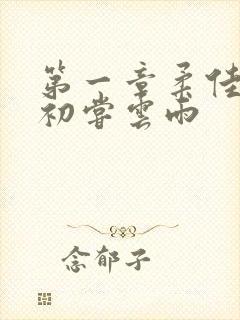 第一章柔佳
初尝雲雨
念郁子